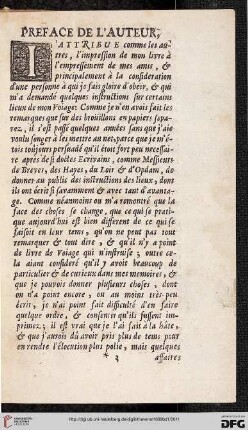 PREFACE DE L'AUTEUR,
J'ATTRIBUE comme les au-
tres, l'impression de mon livre à
l'empressement de mes amis, &
principalement à la consideration
d'une personne à qui je fais gloire d'obeir, & qui
m'a demandé quelques instructions sur certains
lieux de mon Voiage. Comme je n'en avois fait les
remarques que sur des brouillons en papiers sepa-
rez, il s'est passé quelques années sans que j'aie
voulu songer à les mettre au net, parce que je m'é-
tois toûjours persuadé qu'il étoit fort peu necessai-
re aprés de si doctes Ecrivains, comme Messieurs
de Breves, des Hayes, du Loir & d'Opdam, de
donner au public des instructions des lieux, dont
ils ont écrit si savamment & avec tant d'avanta-
ge. Comme néanmoins on m'a remontré que la
face des choses se change, que ce qui se prati-
que aujourd'hui est bien different de ce qui se
faisoit en leur tems, qu'on ne peut pas tout
remarquer & tout dire, & qu'il n'y a point
de livre de Voiage qui n'instruise; outre ce-
la aiant consideré qu'il y avoit beaucoup de
particulier & de curieux dans mes memoires, &
que je pouvois donner plusieurs choses, dont
on n'a point encore, ou au moins très-peu
écrit, je n'ai point fait difficulté d'en faire
quelque ordre, & consentir qu'ils fussent im-
primez; il est vrai que je l'ai fait à la hâte,
& que j'aurois dû avoir pris plus de tems pour
en rendre l'élocution plus polie, mais quelques
* 3 affaires
DFG